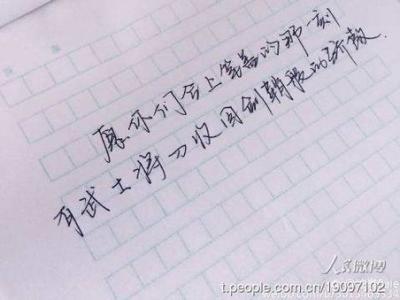 愿你们合上笔盖的那一刻
有武士将刀收回剑鞘般的骄傲.
人民微博
t.people.com.cn/19097102